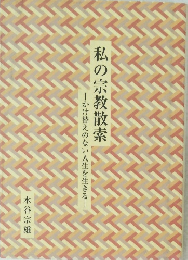 私の宗教散索
―かけ替えのない人生を生きる
水谷宗雄